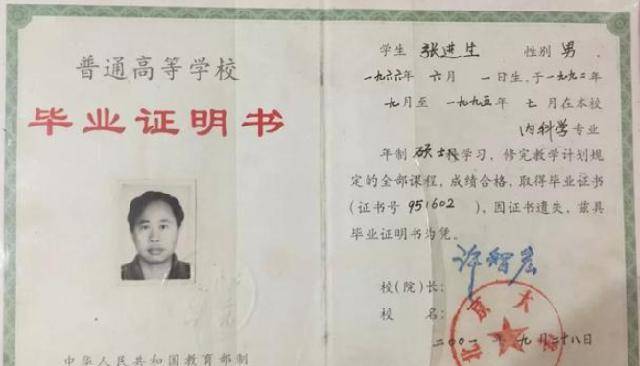 普通高等学校
毕业证明书
中华人民共和国教育部制
学生 张进生 性别 男
一九六六年 六月 一日生,于一九九二年
九月至 一九九五年 七月在本校
内科学 专业
年制 硕士班学习,修完教学计划规
定的全部课程,成绩合格,取得毕业证书
(证书号 951602 ),因证书遗失,兹具
毕业证明书为凭。
许智宏
校(院)长:
校 名:
北京大
二〇〇一年 九月二十八日